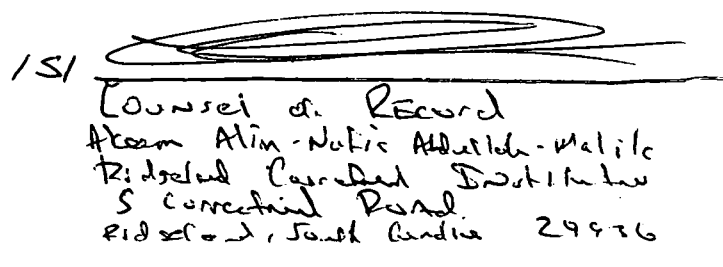 /S/
Counsel of Record
Akeem Alim-Nafis Abdullah-Malik
Ridgeland Correctional Institution
5 Correctional Road
Ridgeland, South Carolina 29936